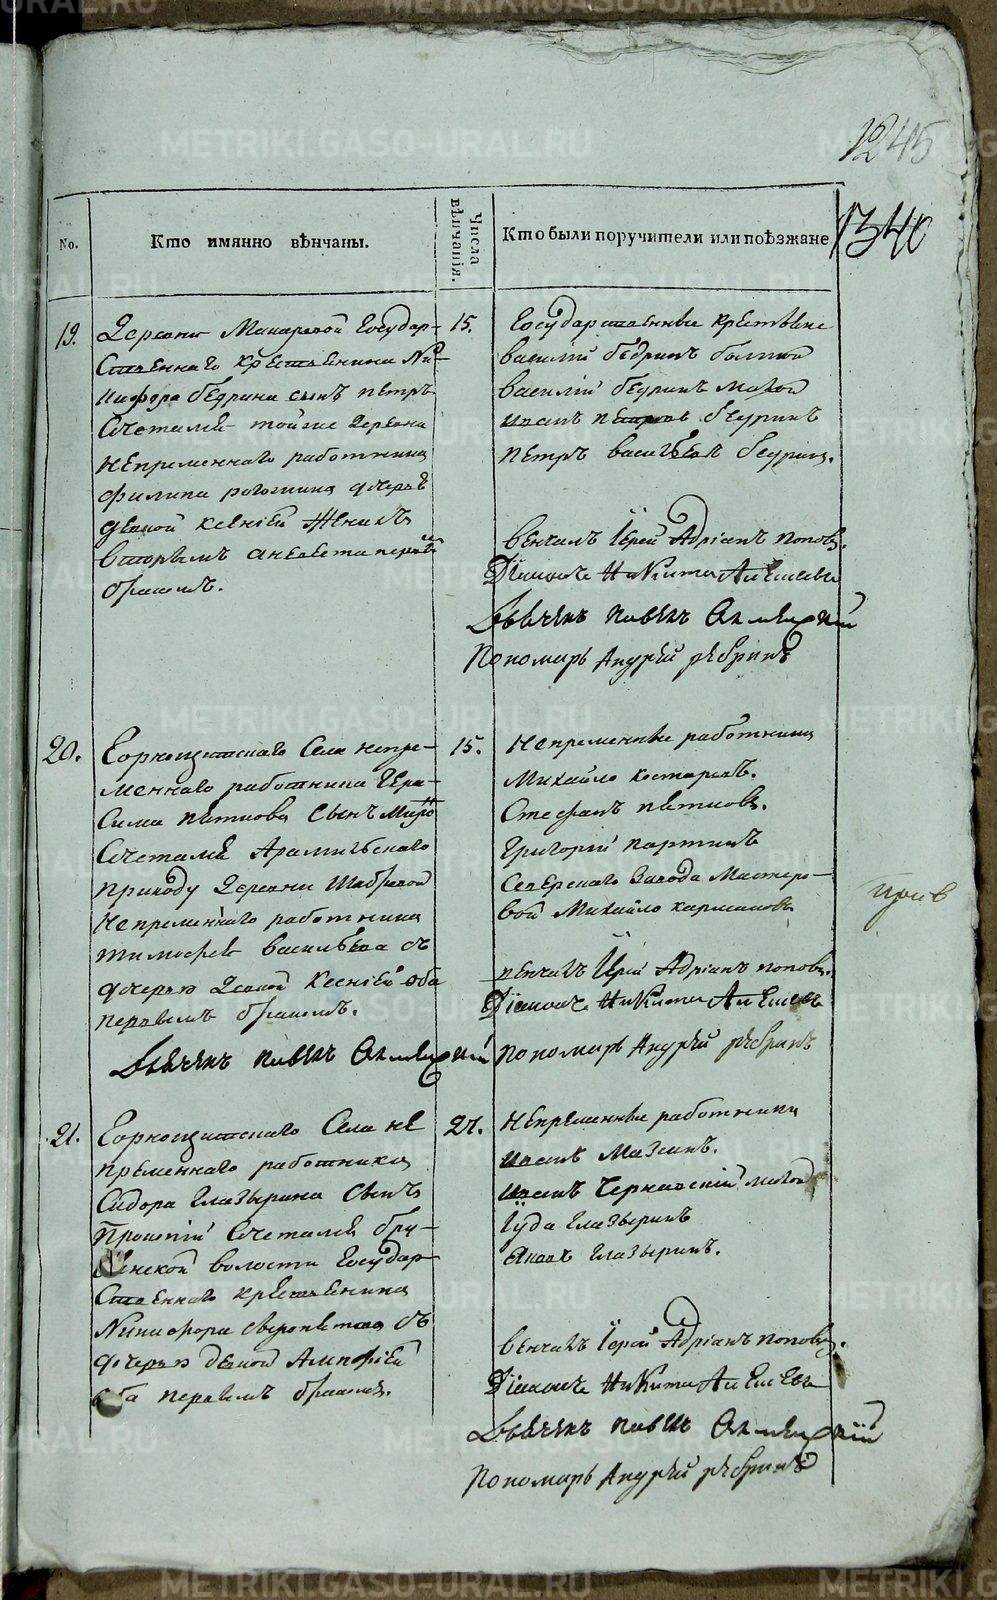 1245
1340
No.
Кто имянно вѣнчаны.
Числа вѣнчанія.
Кто были поручители или поѣзжане
19.
Деревни Макаровой Государ-
ственнаго крестьянина Ни-
кифора бедрина сынъ петръ
Сочетался тойже деревни
непременнаго работника
филипа рогожина дочерью
девкой ксенiей Женихъ
вторымъ а невеста первы
бракомъ.
15.
Государственные крестьяне
василiй бедринъ болшой
василiй бедринъ малой
иванъ петровъ бедринъ
петръ васильевъ бедринъ.
венчалъ Iерей Адрiанъ поповъ.
Дiаконъ Никита Алексеевъ
Дьячекъ павелъ
Пономарь Андрей ребринъ
20.
Горнощитскаго Села непре-
меннаго работника Гера-
сима пяткова Сынъ Миро
Сочетался Арамильскаго
приходу Деревни Шабровой
непременнаго работника
тимофея васильева съ
дочерью девкой Ксенiей оба
первымъ бракомъ.
Дьячекъ павелъ
15.
Непременные работники
Михайло костаревъ.
Стефанъ пятковъ.
Григорiй партинъ
Северскаго Завода Мастеро-
вой Михайло
венчалъ Iерей Адрiанъ поповъ.
Дiаконъ Никита Алексеевъ
пономарь Андрей ребринъ
21.
Горнощитскаго Села не
пременнаго работника
Сидора Глазырина Сынъ
Сочетался бру-
сенской волости Государ-
ственнаго крестьянина
Никифора съ
дочерью девкой
оба первымъ бракомъ.
27.
Непременные работники
иванъ Мазинъ.
иванъ Чернавскiй малой
Iуда Глазыринъ
Глазыринъ.
венчалъ Iерей Адрiанъ поповъ.
Дiаконъ Никита Алексеевъ
Дьячекъ павелъ
Пономарь Андрей ребринъ
METRIKI.GASO-URAL.RU